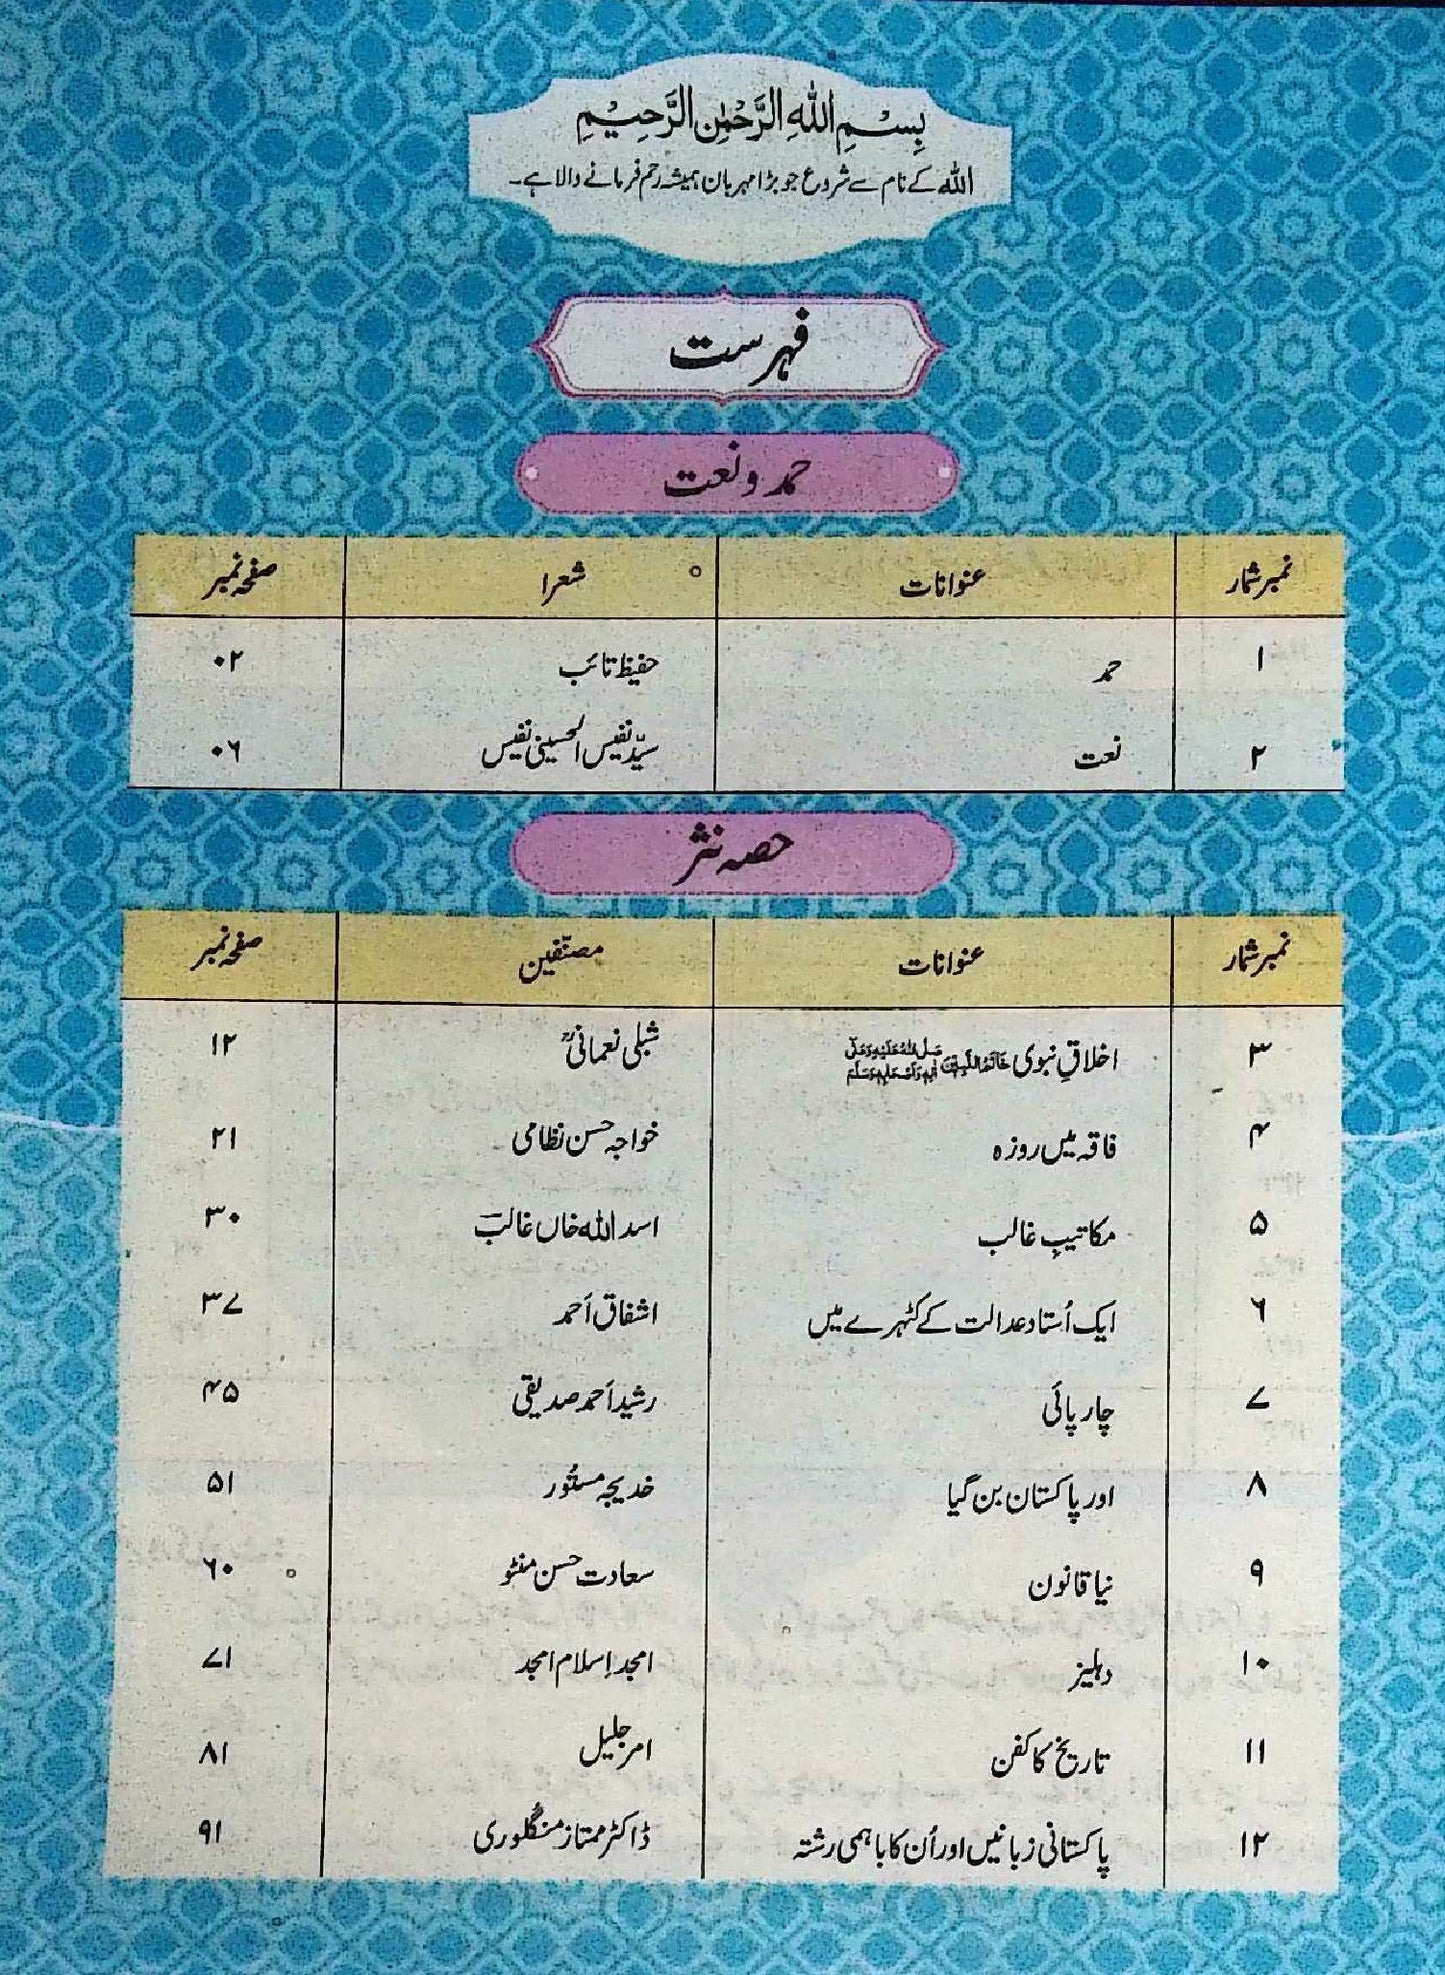 بِسْمِ اللهِ الرَّحْمٰنِ الرَّحِيْمِ
اللہ کے نام سے شروع جو بڑا مہربان ہمیشہ رحم فرمانے والا ہے۔
فہرست
حمد و نعت
نمبر شمار عنوانات شعرا صفحہ نمبر
۱ حمد حفیظ تائب ۰۲
۲ نعت سیّد نفیس الحسینی نفیس ۰۶
حصہ نثر
نمبر شمار عنوانات مصنّفین صفحہ نمبر
۳ اخلاقِ نبوی خَاتَمُ النَّبِیّٖنَ صَلَّی اللّٰہُ عَلَیْہِ وَعَلٰٓی اٰلِہٖ وَاَصْحَابِہٖ وَسَلَّمَ شبلی نعمانیؒ ۱۲
۴ فاقہ میں روزہ خواجہ حسن نظامی ۲۱
۵ مکاتیبِ غالب اسد اللہ خاں غالبؔ ۳۰
۶ ایک اُستاد عدالت کے کٹہرے میں اشفاق اَحمد ۳۷
۷ چارپائی رشید اَحمد صدیقی ۴۵
۸ اور پاکستان بن گیا خدیجہ مستُور ۵۱
۹ نیا قانون سعادت حسن منٹو ۶۰
۱۰ دہلیز امجد اِسلام امجد ۷۱
۱۱ تاریخ کا کفن امر جلیل ۸۱
۱۲ پاکستانی زبانیں اور اُن کا باہمی رشتہ ڈاکٹر ممتاز منگلوری ۹۱